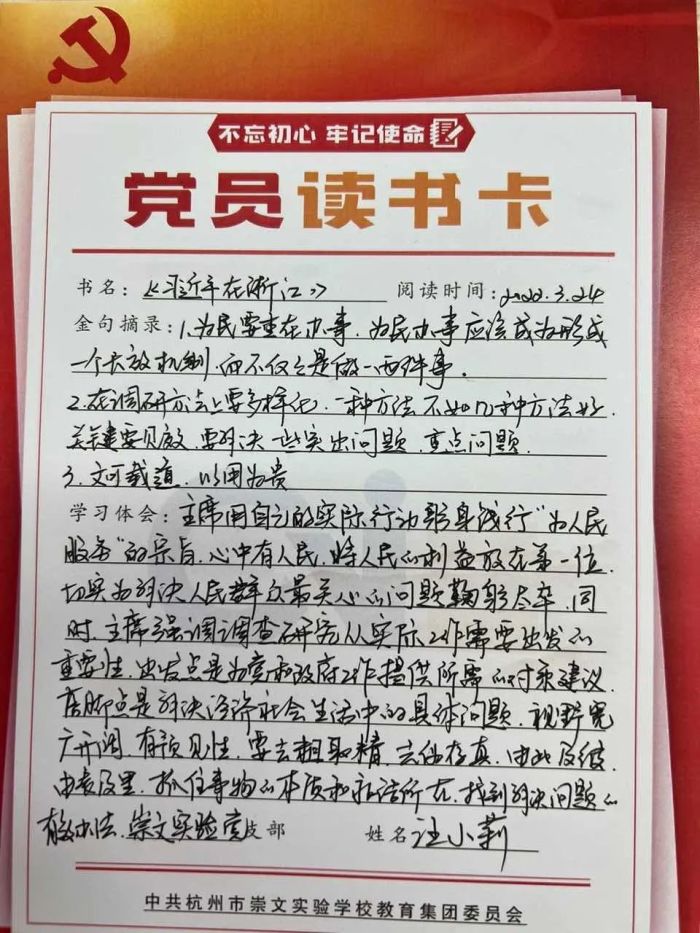 不忘初心 牢记使命
党员读书卡
书名：《习近平在浙江》 阅读时间：2022.3.24
金句摘录：1、为民要重在办事，为民办事应该成为形成
一个长效机制，而不仅仅是做一两件事。
2.在调研方法上要多样化，一种方法不如几种方法好，
关键要见效，要解决一些突出问题、重点问题
3、文可载道，以用为贵
学习体会：主席用自己的实际行动躬身践行“为人民
服务”的宗旨，心中有人民，将人民的利益放在第一位，
切实为解决人民群众最关心的问题鞠躬尽瘁，同
时，主席强调调查研究从实际工作需要出发的
重要性，出发点是为党和政府工作提供所需的对策建议，
落脚点是解决经济社会生活中的具体问题，视野宽
广开阔，有预见性，要去粗取精，去伪存真，由此及彼，
由表及里，抓住事物的本质和所在，找到解决问题的
有效办法. 崇文实验党支部 姓名 汪小莉
中共杭州市崇文实验学校教育集团委员会